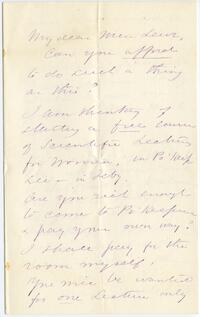 My dear Mrs
Can you afford
to do such a thing
as this?
I am thinking of
starting a free course
of Scientific Lectures
for Women, in Po'keep
sie - in Feby.
Are you rich enough
to come to Po'keepsie
& pay your own way?
I shall pay for the
room myself.
You will be wanted
for one Lecture only